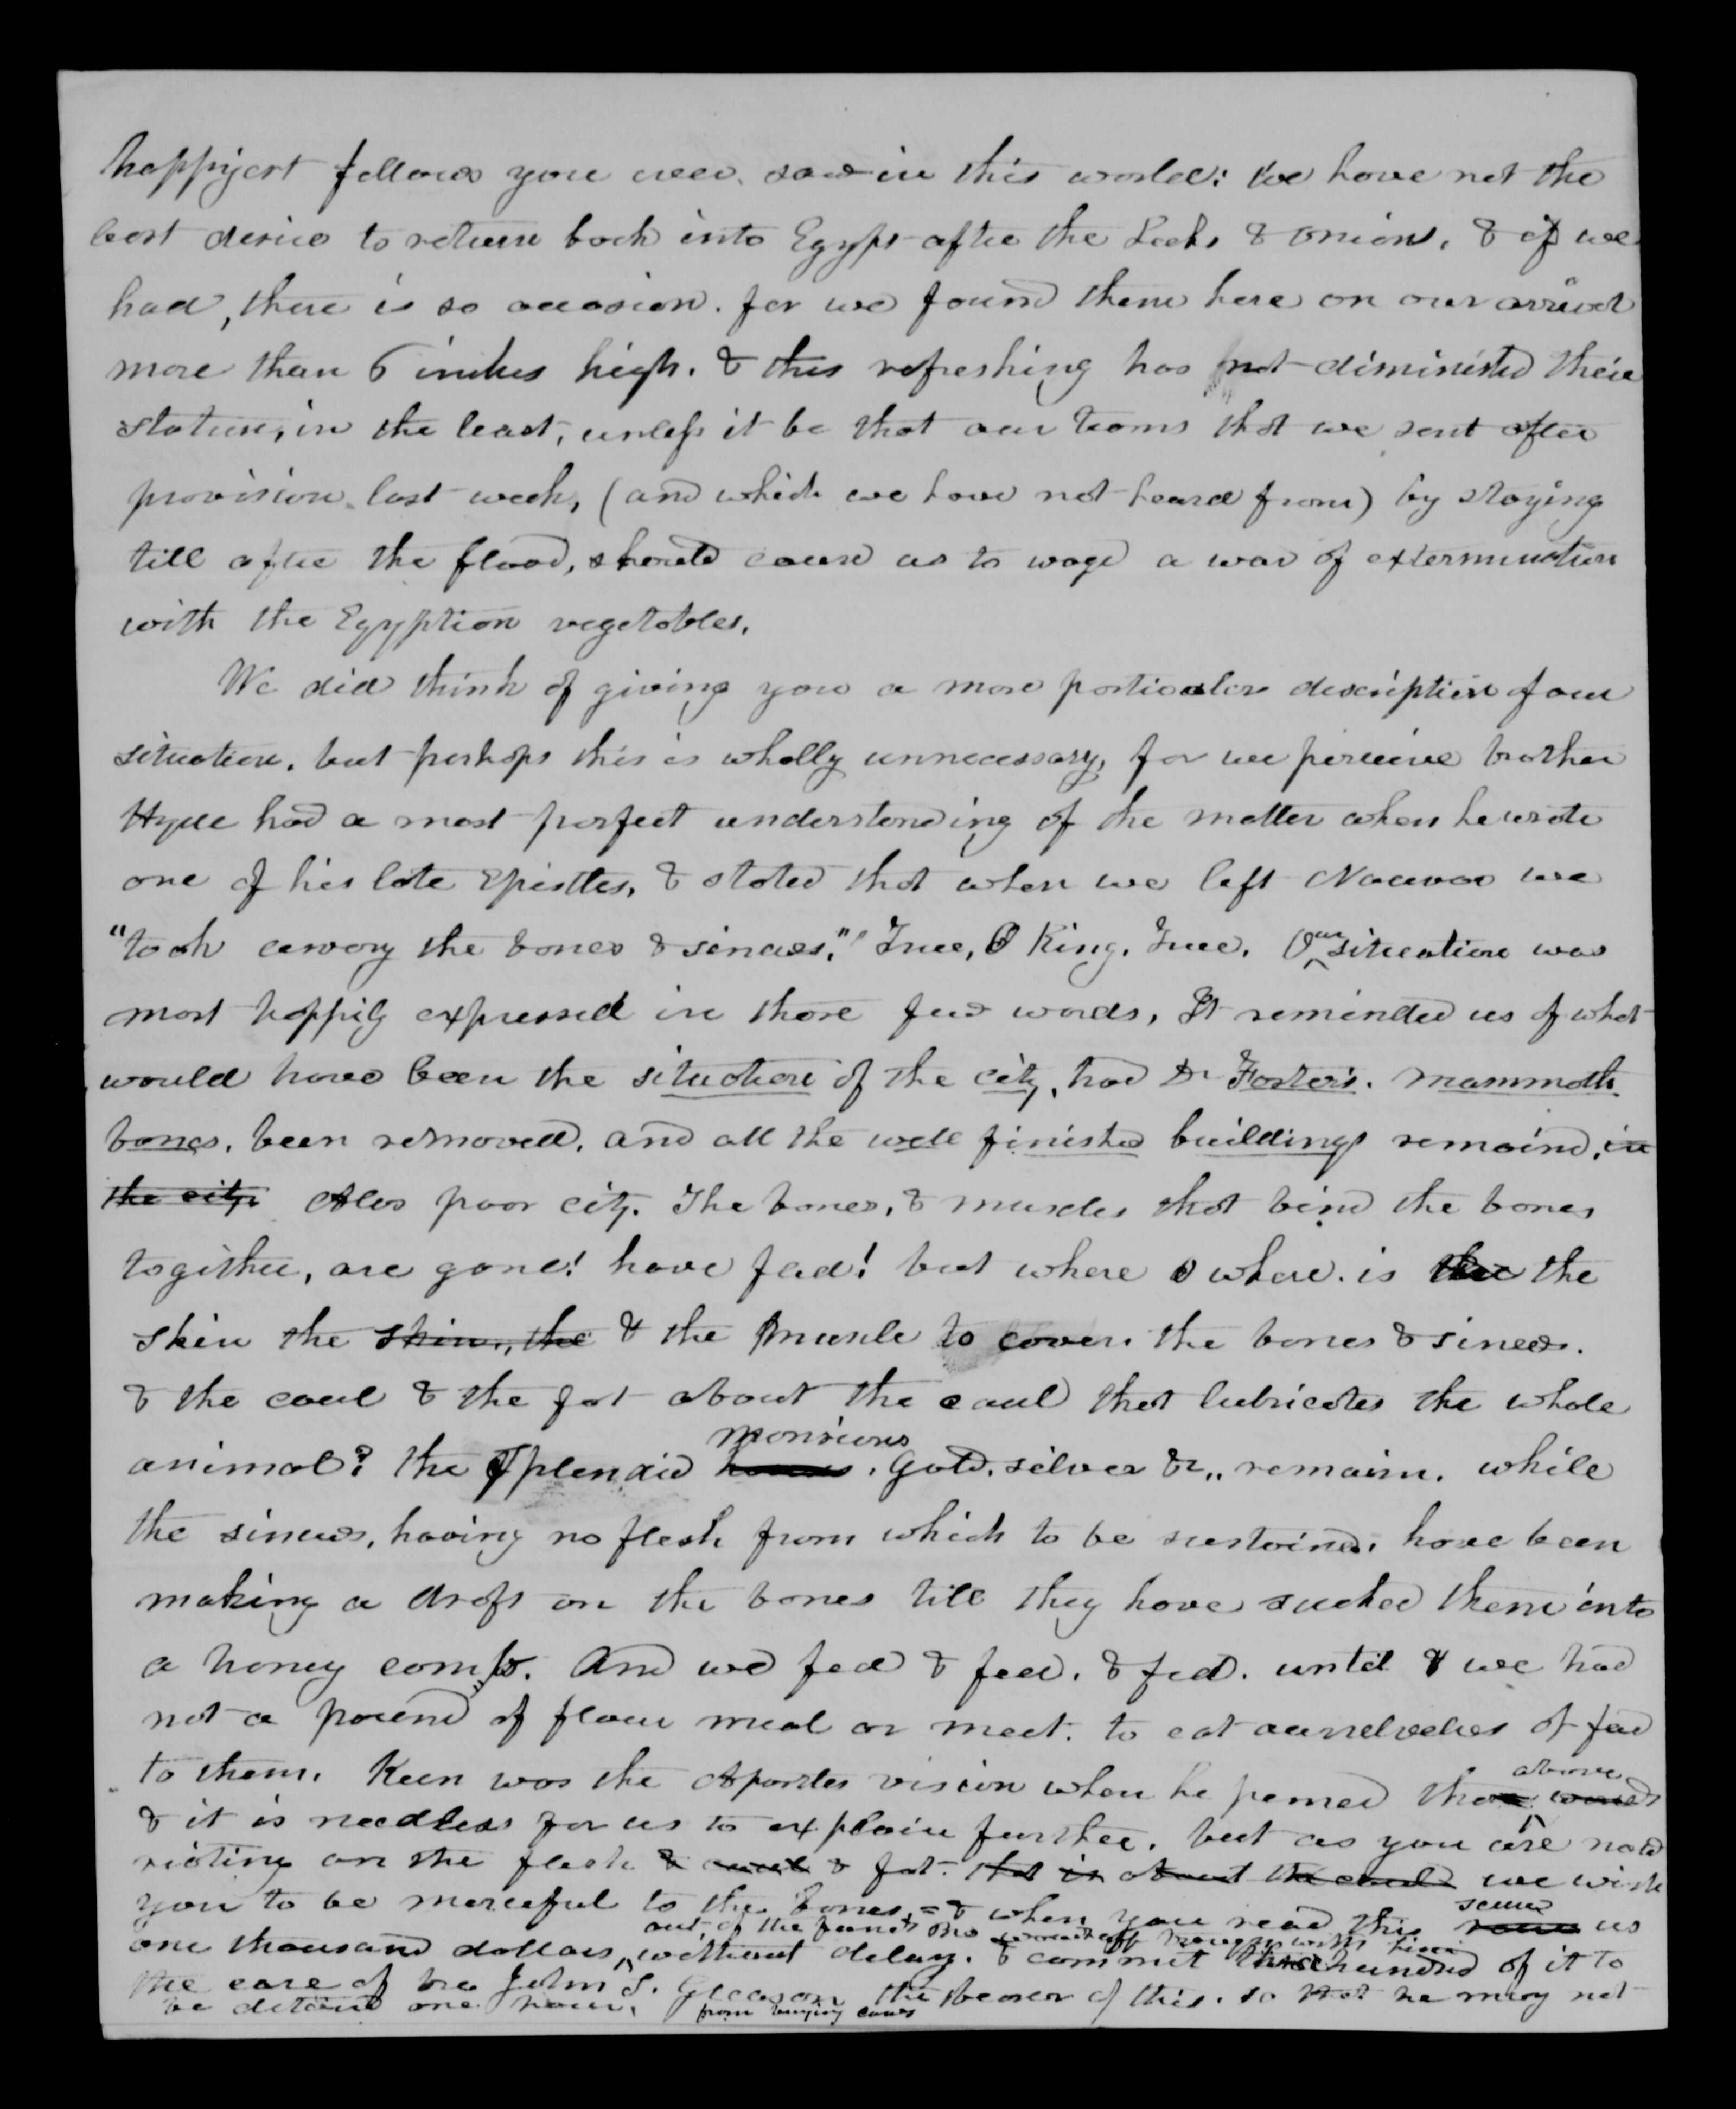 happiest fellows you ever saw in this world: we have not the
least desire to return back into Egypt after the Leeks & onions, & if we
had, there is no occasion. for we found them here on our arrival
more than 6 inches high. & this refreshing has not diminished their
stature, in the least, unless it be that our teams that we sent after
provision last week, (and which we have not heard from) by staying
till after the flood, should cause us to wage a war of extermination
with the Egyptian vegetables.
We did think of giving you a more particular description of our
situation. but perhaps this is wholly unnecessary, for we perceive brother
Hyde had a most perfect understanding of the matter when he wrote
one of his late Epistles, & stated that when we left Nauvoo we
"took away the bones & sinews." True, O King. True. Our situation was
most happily expressed in those few words, It reminded us of what
would have been the situation of the city, had Dr Foster's. mammoth
bones. been removed. and all the well finished buildings remaind, in
the city. Alas poor city. The bones, & muscles that bind the bones
togither, are gone! have fled! but where O where. is the the
skin the skin, the & the muscle to cover. the bones & sinews.
& the caul & the fat about the caul that lubricates the whole
animal? the splendid houses mansions, gold, silver &c,, remain. while
the sinews, having no flesh from which to be sustained. have been
making a draft on the bones till they have sucked them into
a honey comb. And we fed & feed. & fed. until & we had
not a pound of flour meal or meat. to eat ourselves or feed
to them. Keen was the Apostles vision when he penned those words above
& it is needless for us to explain further. but as you are now
rioting on the flesh & caul & fat. that is about the caul we wish
you to be merceful to the bones, = & when you read this send us
one thousand dollars, out of the funds Bro brought with him without delay. & commit three hundred of it to
the care of bro John S. Gleason the bearer of this. so that he may not
be detaind one hour, from buying cows